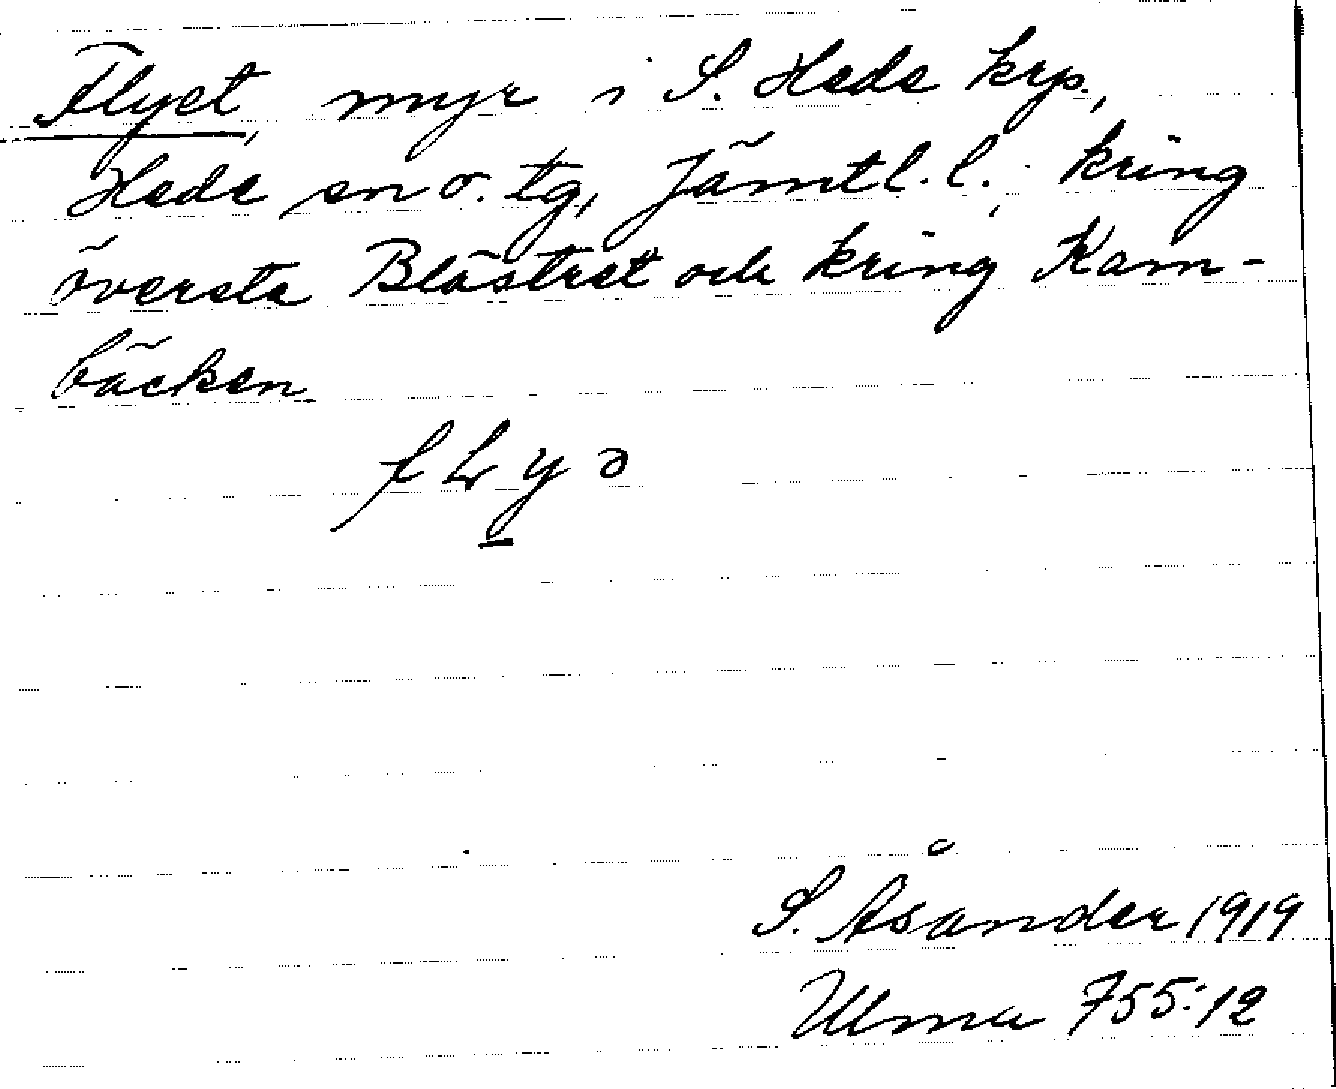 Flyet, myr i S. Hede krp.,
Hede sn o. tg, Jämtl. l.; kring
översta Blästret och kring Kam-
bäcken.
S. Åsander 1919
Ulma 755:12